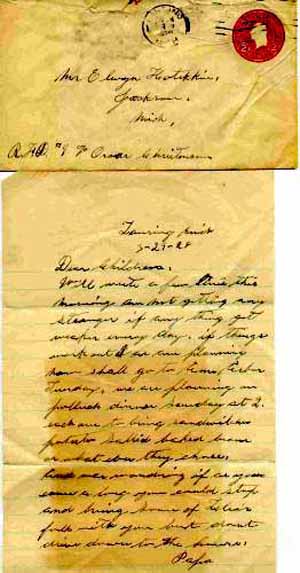 Mr Elwyn Hotchkin,
Jackson,
Mich,
R.F.D. # 8 % Oscar Christman
Lansing Mich
3-27-28
Dear Children,
Will write a few lines this
morning am not getting any
stronger if any thing get
weaker every day, if things
work out I am planning
shall go to Ann Arbor
Tuesday, we are planning on
potluck dinner Sunday at 2.
each one to bring sandwitches
potato sallid baked beans
or what ever they choose.
was wondring if as you
come a long you could stop
and bring some of
folks with you but dont
drive down to the
Papa